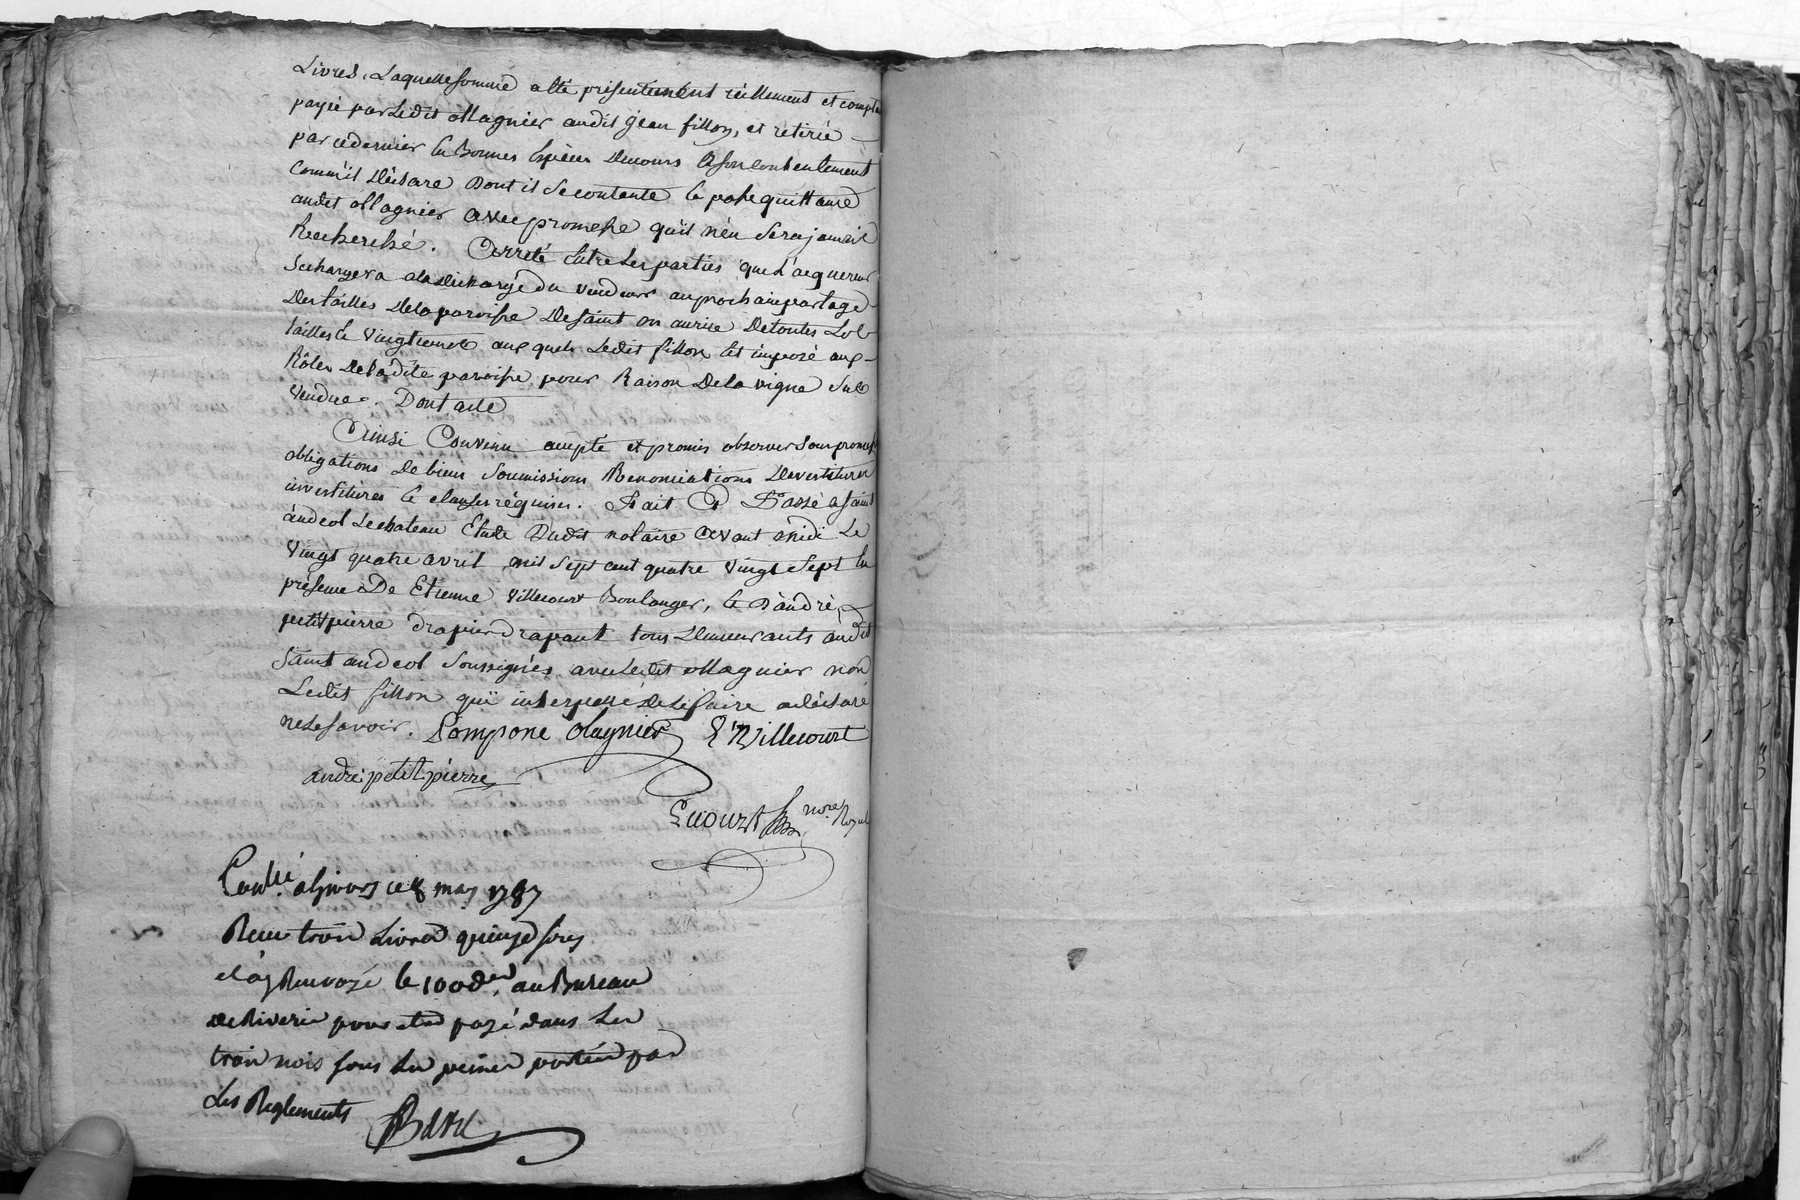 Livres, Laquelle somme a été présentement réellement et comptant
payée par Ledit ollagnier audit jean fillon, et retirée
par cedernier En Bonnes Espèces Decours a son contentement
comm'il Déclare Dont il se contente Et passe quittance
audit ollagnier avec promesse qu'il n'en sera jamais
Recherché. Arreté Entre Les parties que L'acquereur
Sechargera a la Décharge du vendeur au prochain partage
Des tailles De la paroisse De saint Des toutes Les
tailles Et vingtiemes aux quels Ledit fillon Est imposé aux
Rôles De ladite paroisse pour Raison De la vigne sus
vendue. Dont acte
Ainsi Convenu accepté et promis observer sous promesses
obligations De biens soumissions Renonciations Devestitures
investitures Et clauses réquises. Fait Et Passé a saint
andeol Lechateau Etude Dudit notaire avant midi Le
vingt quatre avril mil sept cent quatre vingt sept En
présence De Etienne villecourt Boulanger, Et D'andré
petitpierre drapier drapant tous Demeurants audit
saint andeol soussignés avec Ledit ollagnier non
Ledit fillon qui interpellé De Le faire a déclaré
ne Le savoir. Pompone olagnier E Villecourt
andré petit pierre
nore Royal
Conllé a Givors ce 8 may 1787
Reçu trois Livres quinze sous
et ay Renvoyé le 100 der. au Bureau
de Riverie pour etre payé dans Les
trois mois sous Les peines portées par
Les Reglements